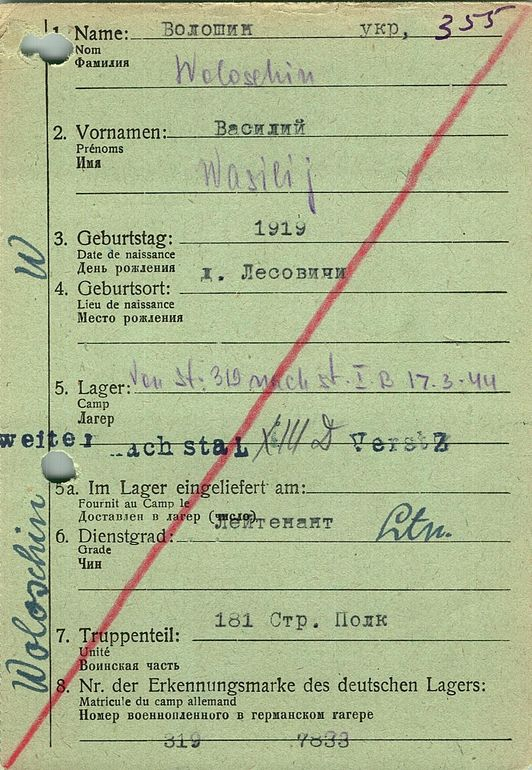 1. Name: Волошин укр, 355
Nom
Фамилия
Woloschin
2. Vornamen: Василий
Prénoms
Имя
Wasilij
W
3. Geburtstag: 1919
Date de naissance
День рождения
4. Geburtsort: д. Лесовичи
Lieu de naissance
Место рождения
5. Lager: Von St. 319 nach St. I B 17.3.44
Camp
Лагер
weiter nach stal XIII D Verstz
5a. Im Lager eingeliefert am:
Fournit au Camp le
Доставлен в лагер (число)
6. Dienstgrad: Лейтенант Ltn.
Grade
Чин
Woloschin
7. Truppenteil: 181 Стр. Полк
Unité
Воинская часть
8. Nr. der Erkennungsmarke des deutschen Lagers:
Matricule du camp allemand
Номер военнопленного в германском лагере
319 7833